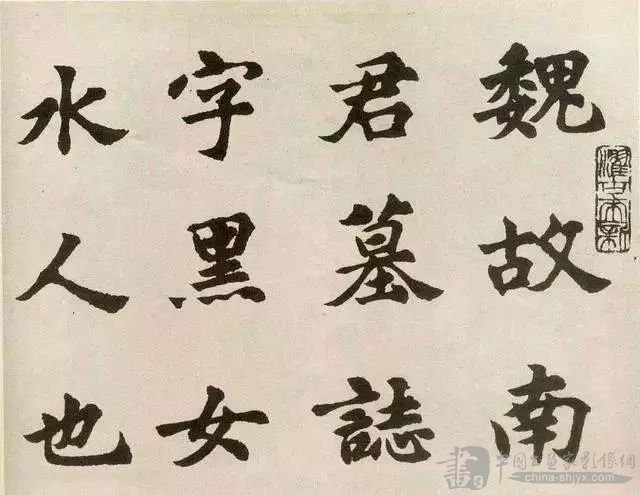 魏故南
君墓誌
字黑女
水人也
書 中国书画家影像網
china-shjyx.com